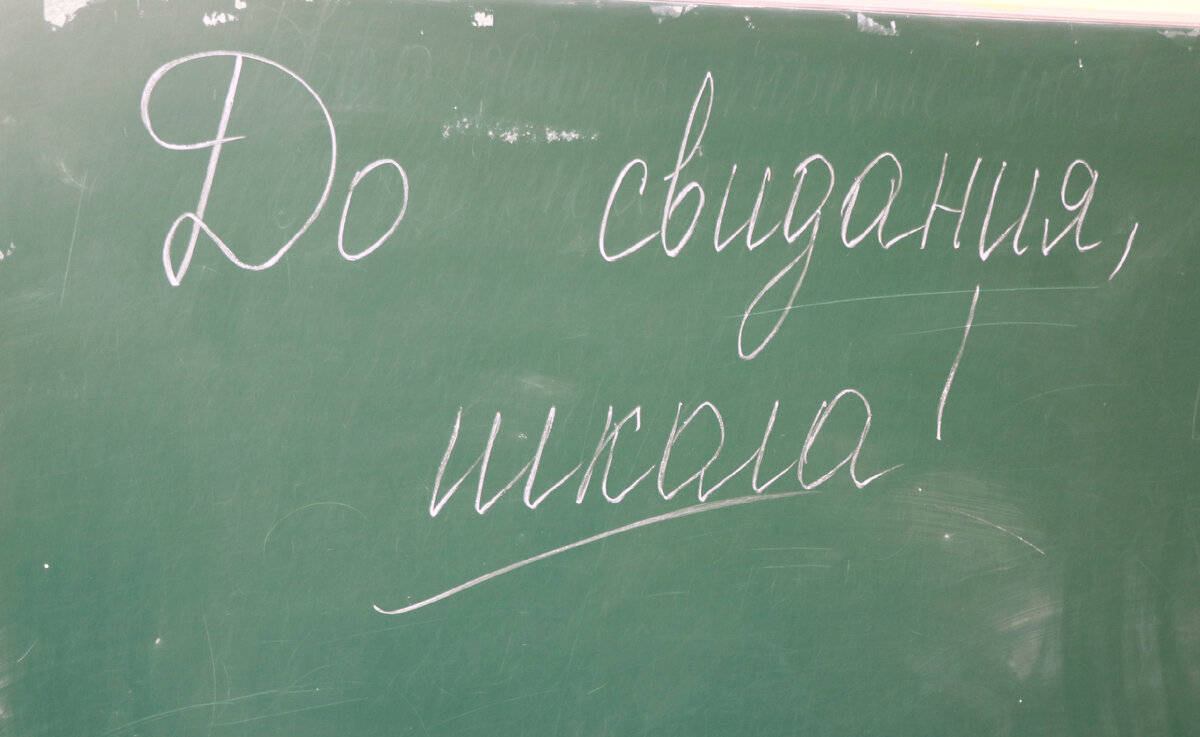 До свидания,
школа!